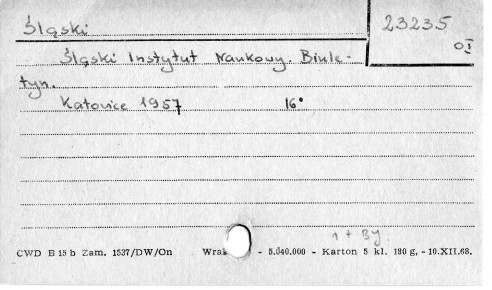 Śląski
23235
OI
Śląski Instytut Naukowy. Biule-
tyn.
Katowice 1957 16°
1 + By
CWD B 15 b Zam. 1537/DW/On Wra - 5.040.000 - Karton 5 kl. 180 g. - 10.XII.68.